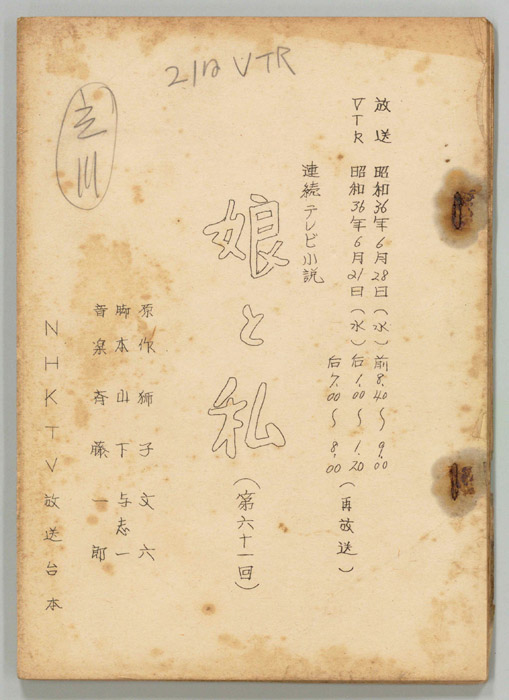 21日 VTR
立川
放送 昭和36年6月28日(水)前8.40〜9.00
VTR 昭和36年6月21日(水)后1.00〜1.20
(再放送)
后7.00〜8.00
連続テレビ小説
娘と私
(第六十一回)
原作 獅子文六
脚本 山下与志一
音楽 斉藤一郎
NHKTV放送台本